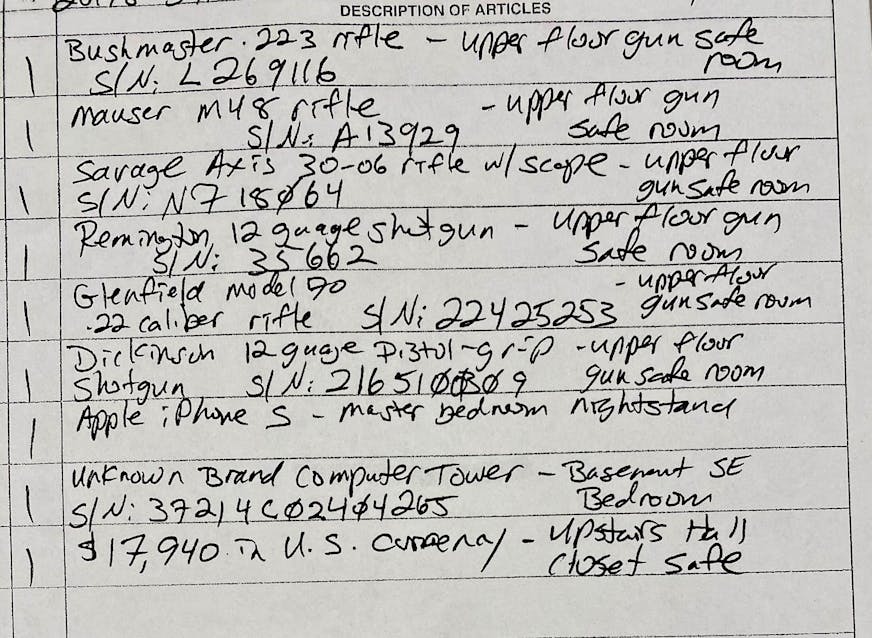 DESCRIPTION OF ARTICLES
1 Bushmaster .223 rifle - upper floor gun safe room
S/N: L269116
1 Mauser M48 rifle - upper floor gun
S/N: A13929 safe room
1 Savage Axis 30-06 rifle w/ scope - upper floor
S/N: N718064 gun safe room
1 Remington 12 guage shotgun - upper floor gun
S/N: 35662 safe room
1 Glenfield model 70 - upper floor
.22 caliber rifle S/N: 22425253 gun safe room
1 Dickinson 12 guage Pistol-grip - upper floor
Shotgun S/N: 216510 09 gun safe room
1 Apple iPhone S - master bedroom nightstand
1 Unknown Brand Computer Tower - Basement SE
S/N: 37214C02404265 Bedroom
1 $17,940 in U.S. currency - Upstairs Hall
Closet Safe